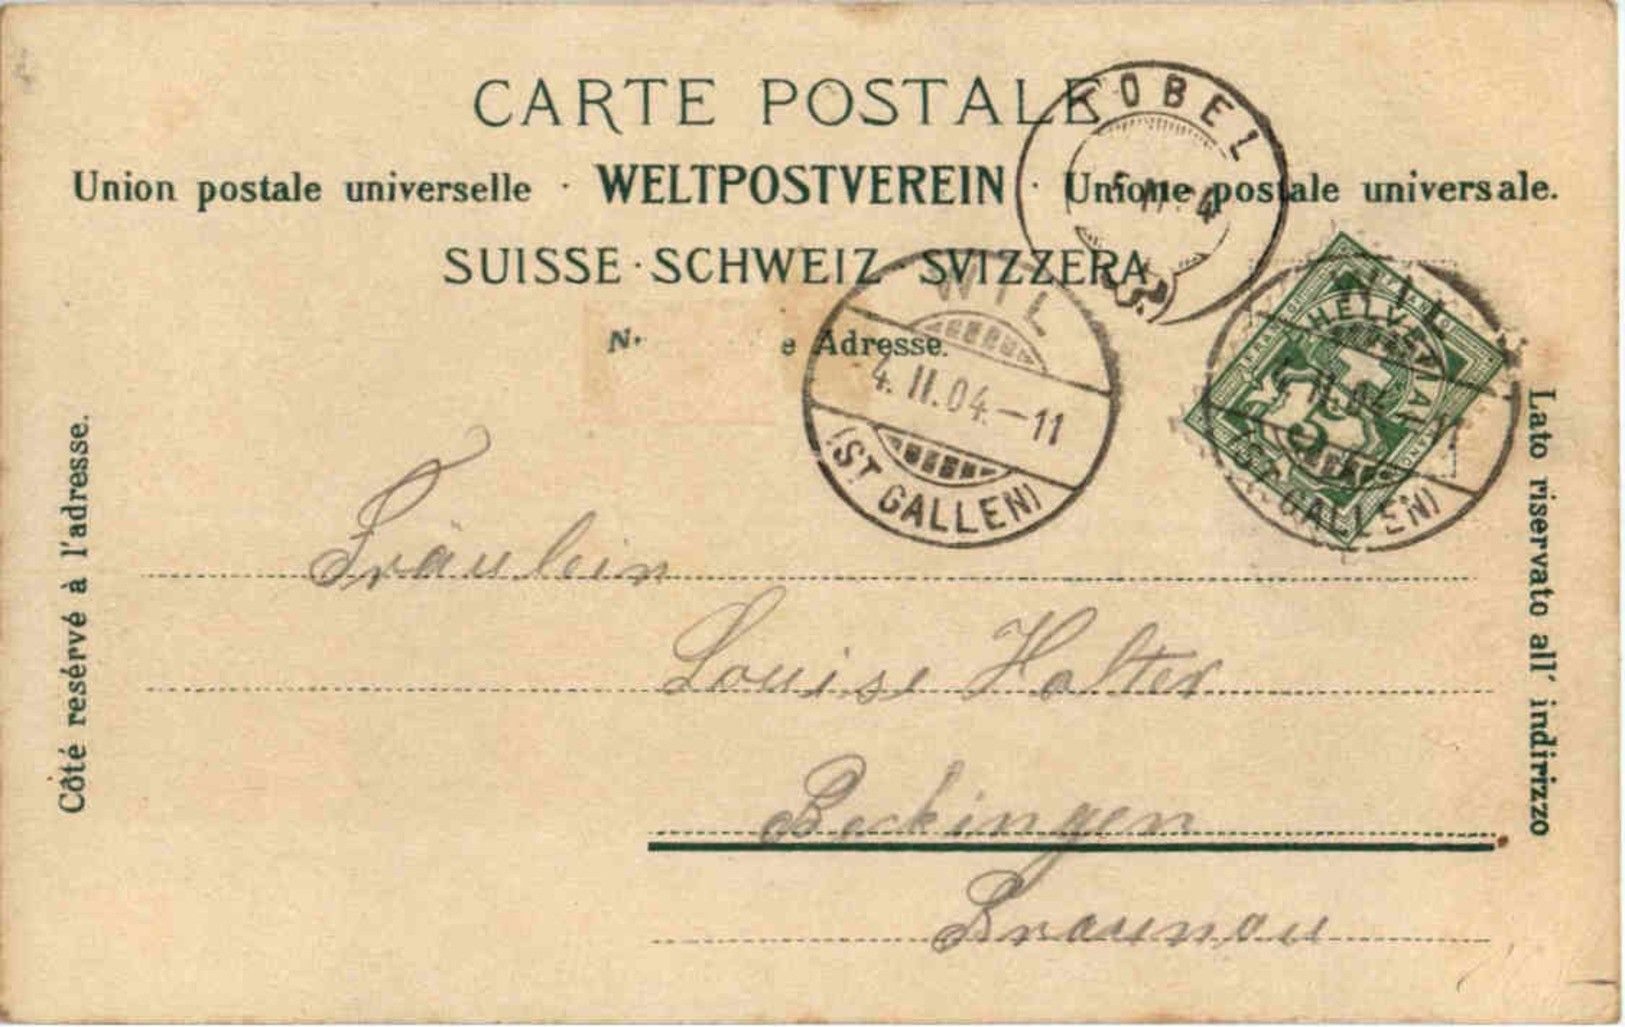 CARTE POSTALE
Union postale universelle · WELTPOSTVEREIN · Unione postale universale.
SUISSE · SCHWEIZ · SVIZZERA
N. e Adresse.
TOBEL
WIL
4. II. 04. – 11
(ST GALLEN)
HELVETIA
5
WIL
II. 04
(ST GALLEN)
Côté resérvé à l'adresse.
Lato riservato all' indirizzo
Fräulein
Louise Halter
Beckingen
Braunau